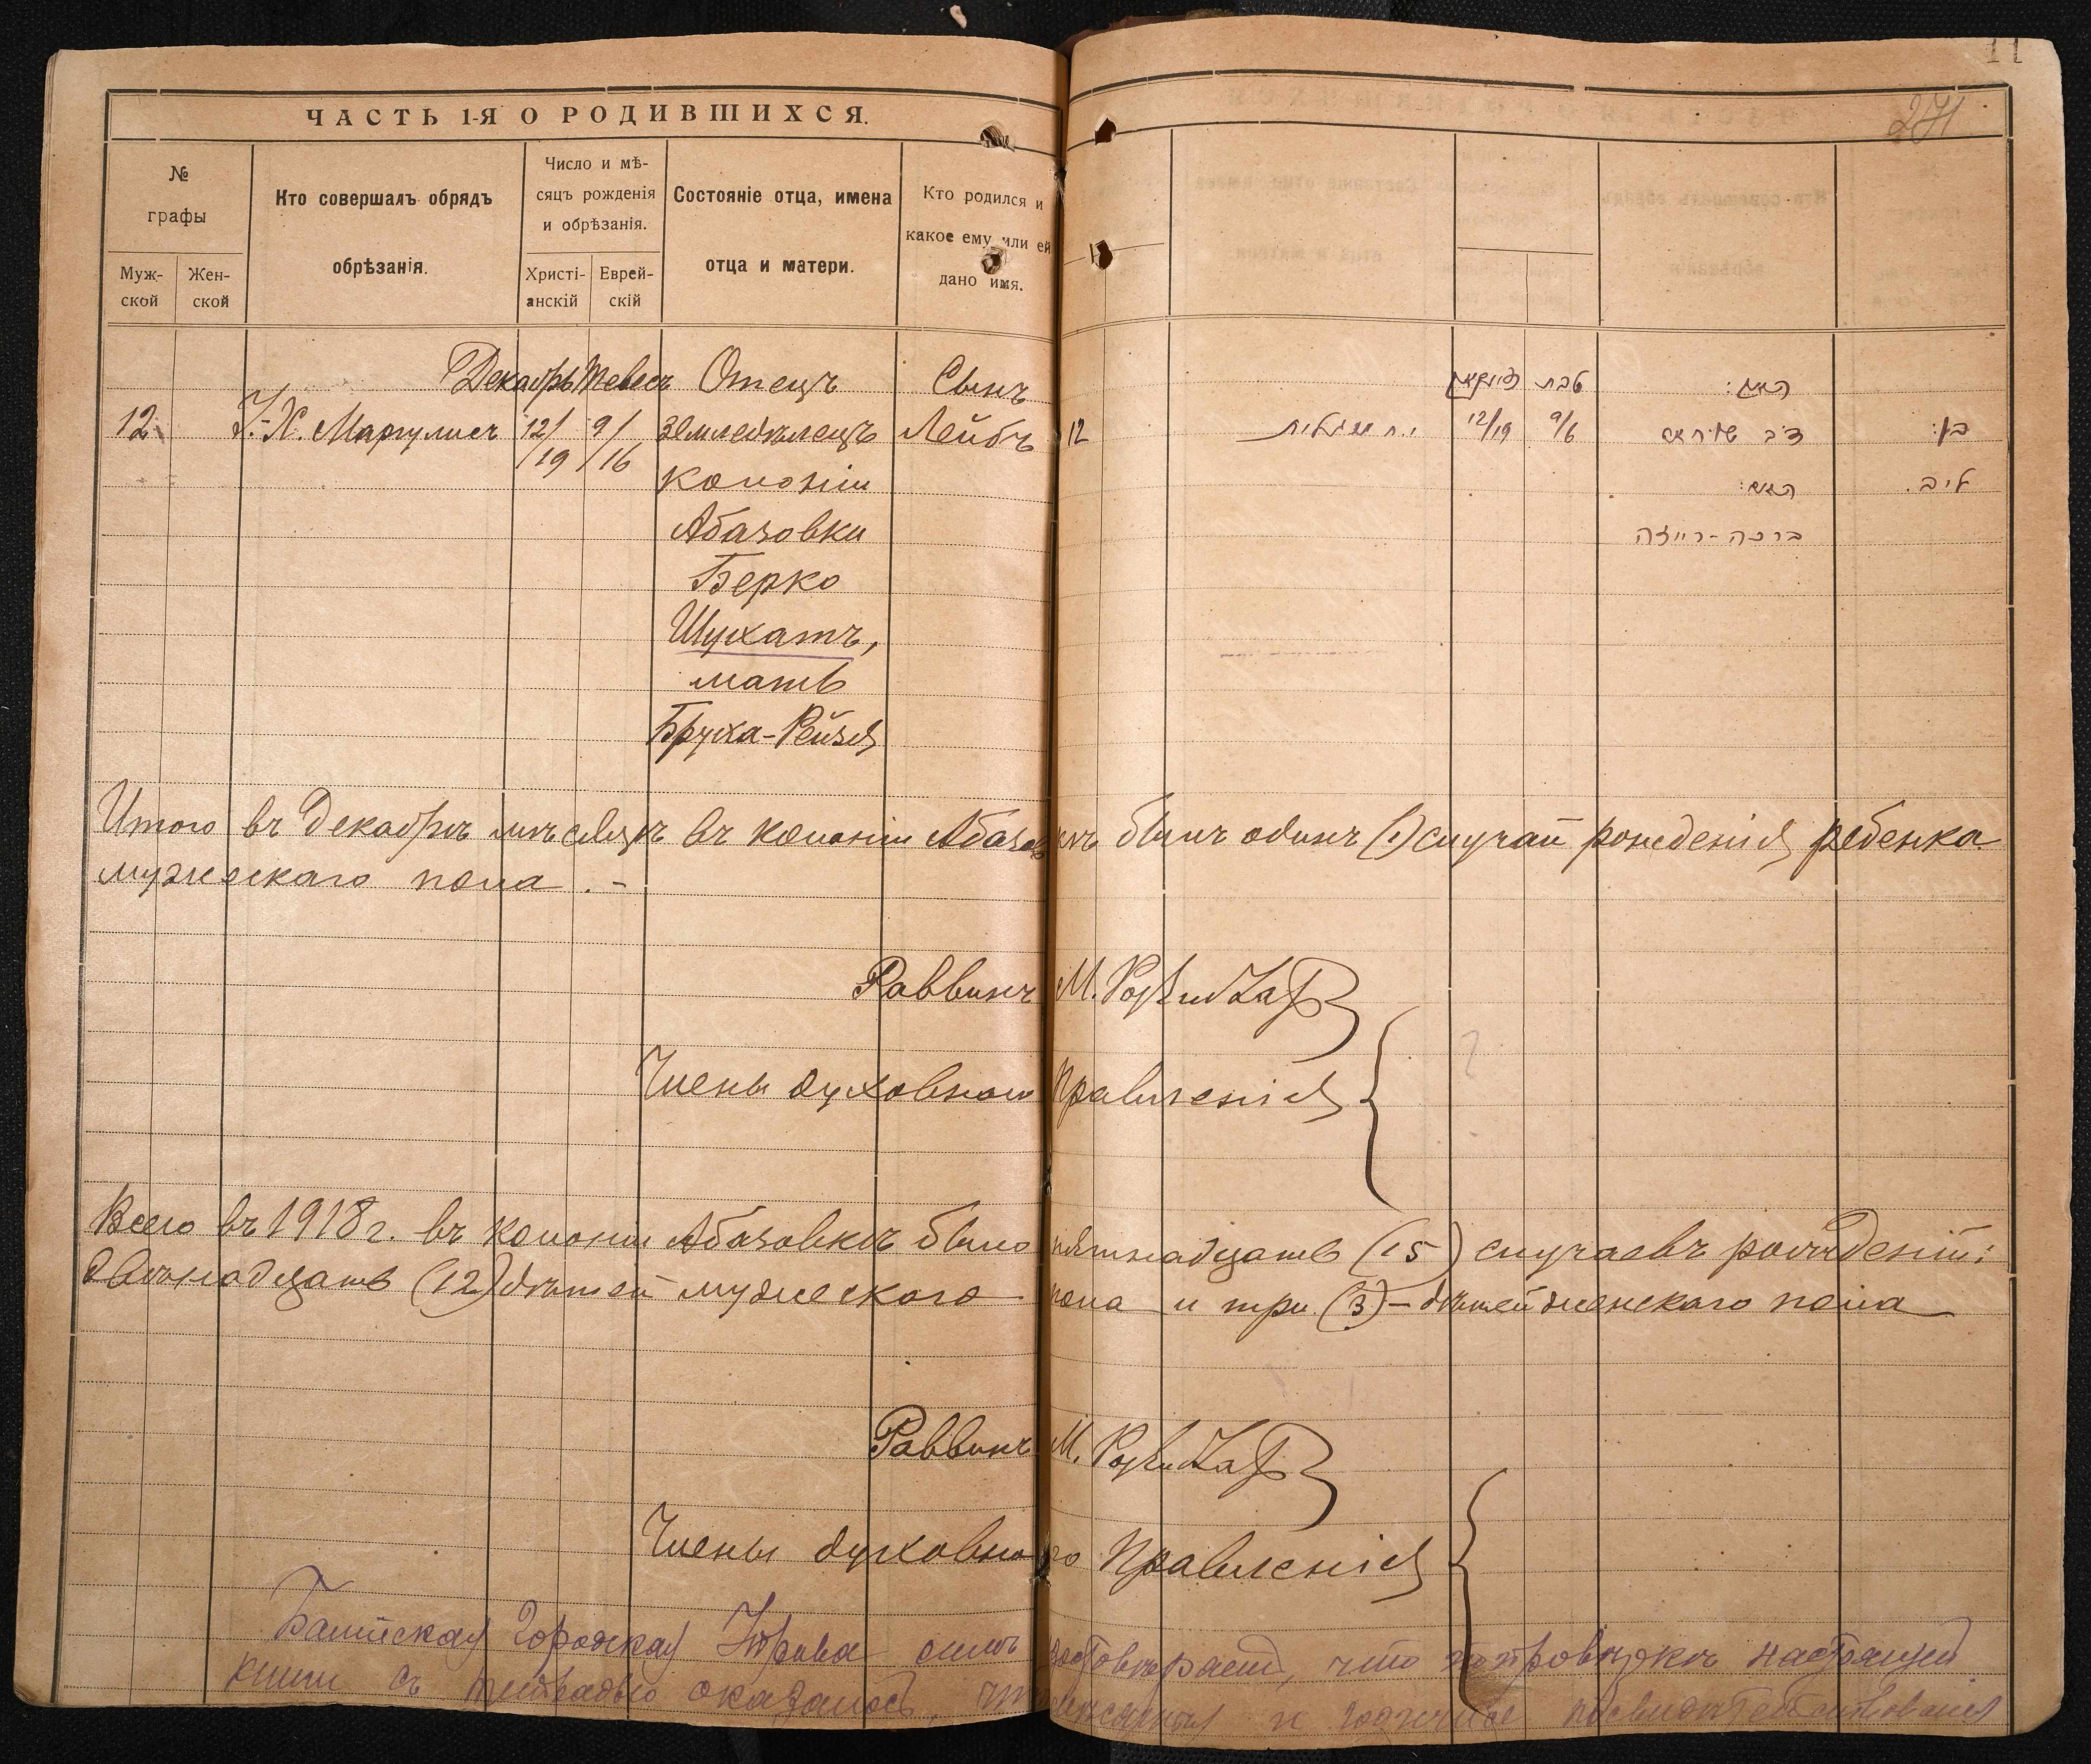 11
271
ЧАСТЬ 1-Я О РОДИВШИХСЯ.
№ графы
Муж-ской
Жен-ской
Кто совершалъ обрядъ обрѣзанія.
Число и мѣ-сяцъ рожденія и обрѣзанія.
Христі-анскій
Еврей-скій
Состояніе отца, имена отца и матери.
Кто родился и какое ему или ей дано имя.
Декабрь Тевесъ Отецъ Сынъ
12 Х. Маргулисъ 12/19 9/16 земледѣлецъ Лейбъ
колоніи
Абазовки
Берко
Шухатъ,
мать
Бруха-Рейзя
טבת האב:
12 12/19 9/6 בן:
האם: ליב.
ברכה-רייזה
Итого въ Декабрѣ мѣсяцѣ въ колоніи Абазовкѣ былъ одинъ (1) случай рожденія ребенка
мужескаго пола. -
Раввинъ М.
Члены духовнаго Правленія
Всего въ 1918 г. въ колоніи Абазовкѣ было пятнадцать (15) случаевъ рожденій:
двѣнадцать (12) дѣтей мужескаго пола и три (3) - дѣтей женскаго пола
Раввинъ М.
Члены духовнаго Правленія
Балтская Городская Управа симъ удостовѣряетъ, что
книги съ тетрадью оказалось,